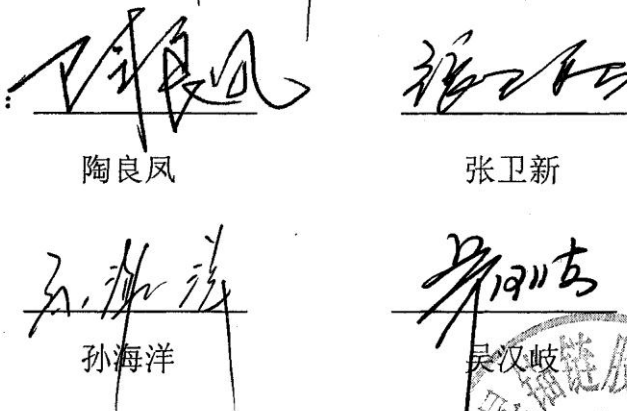 陶良凤 张卫新
孙海洋 吴汉岐
锚链股